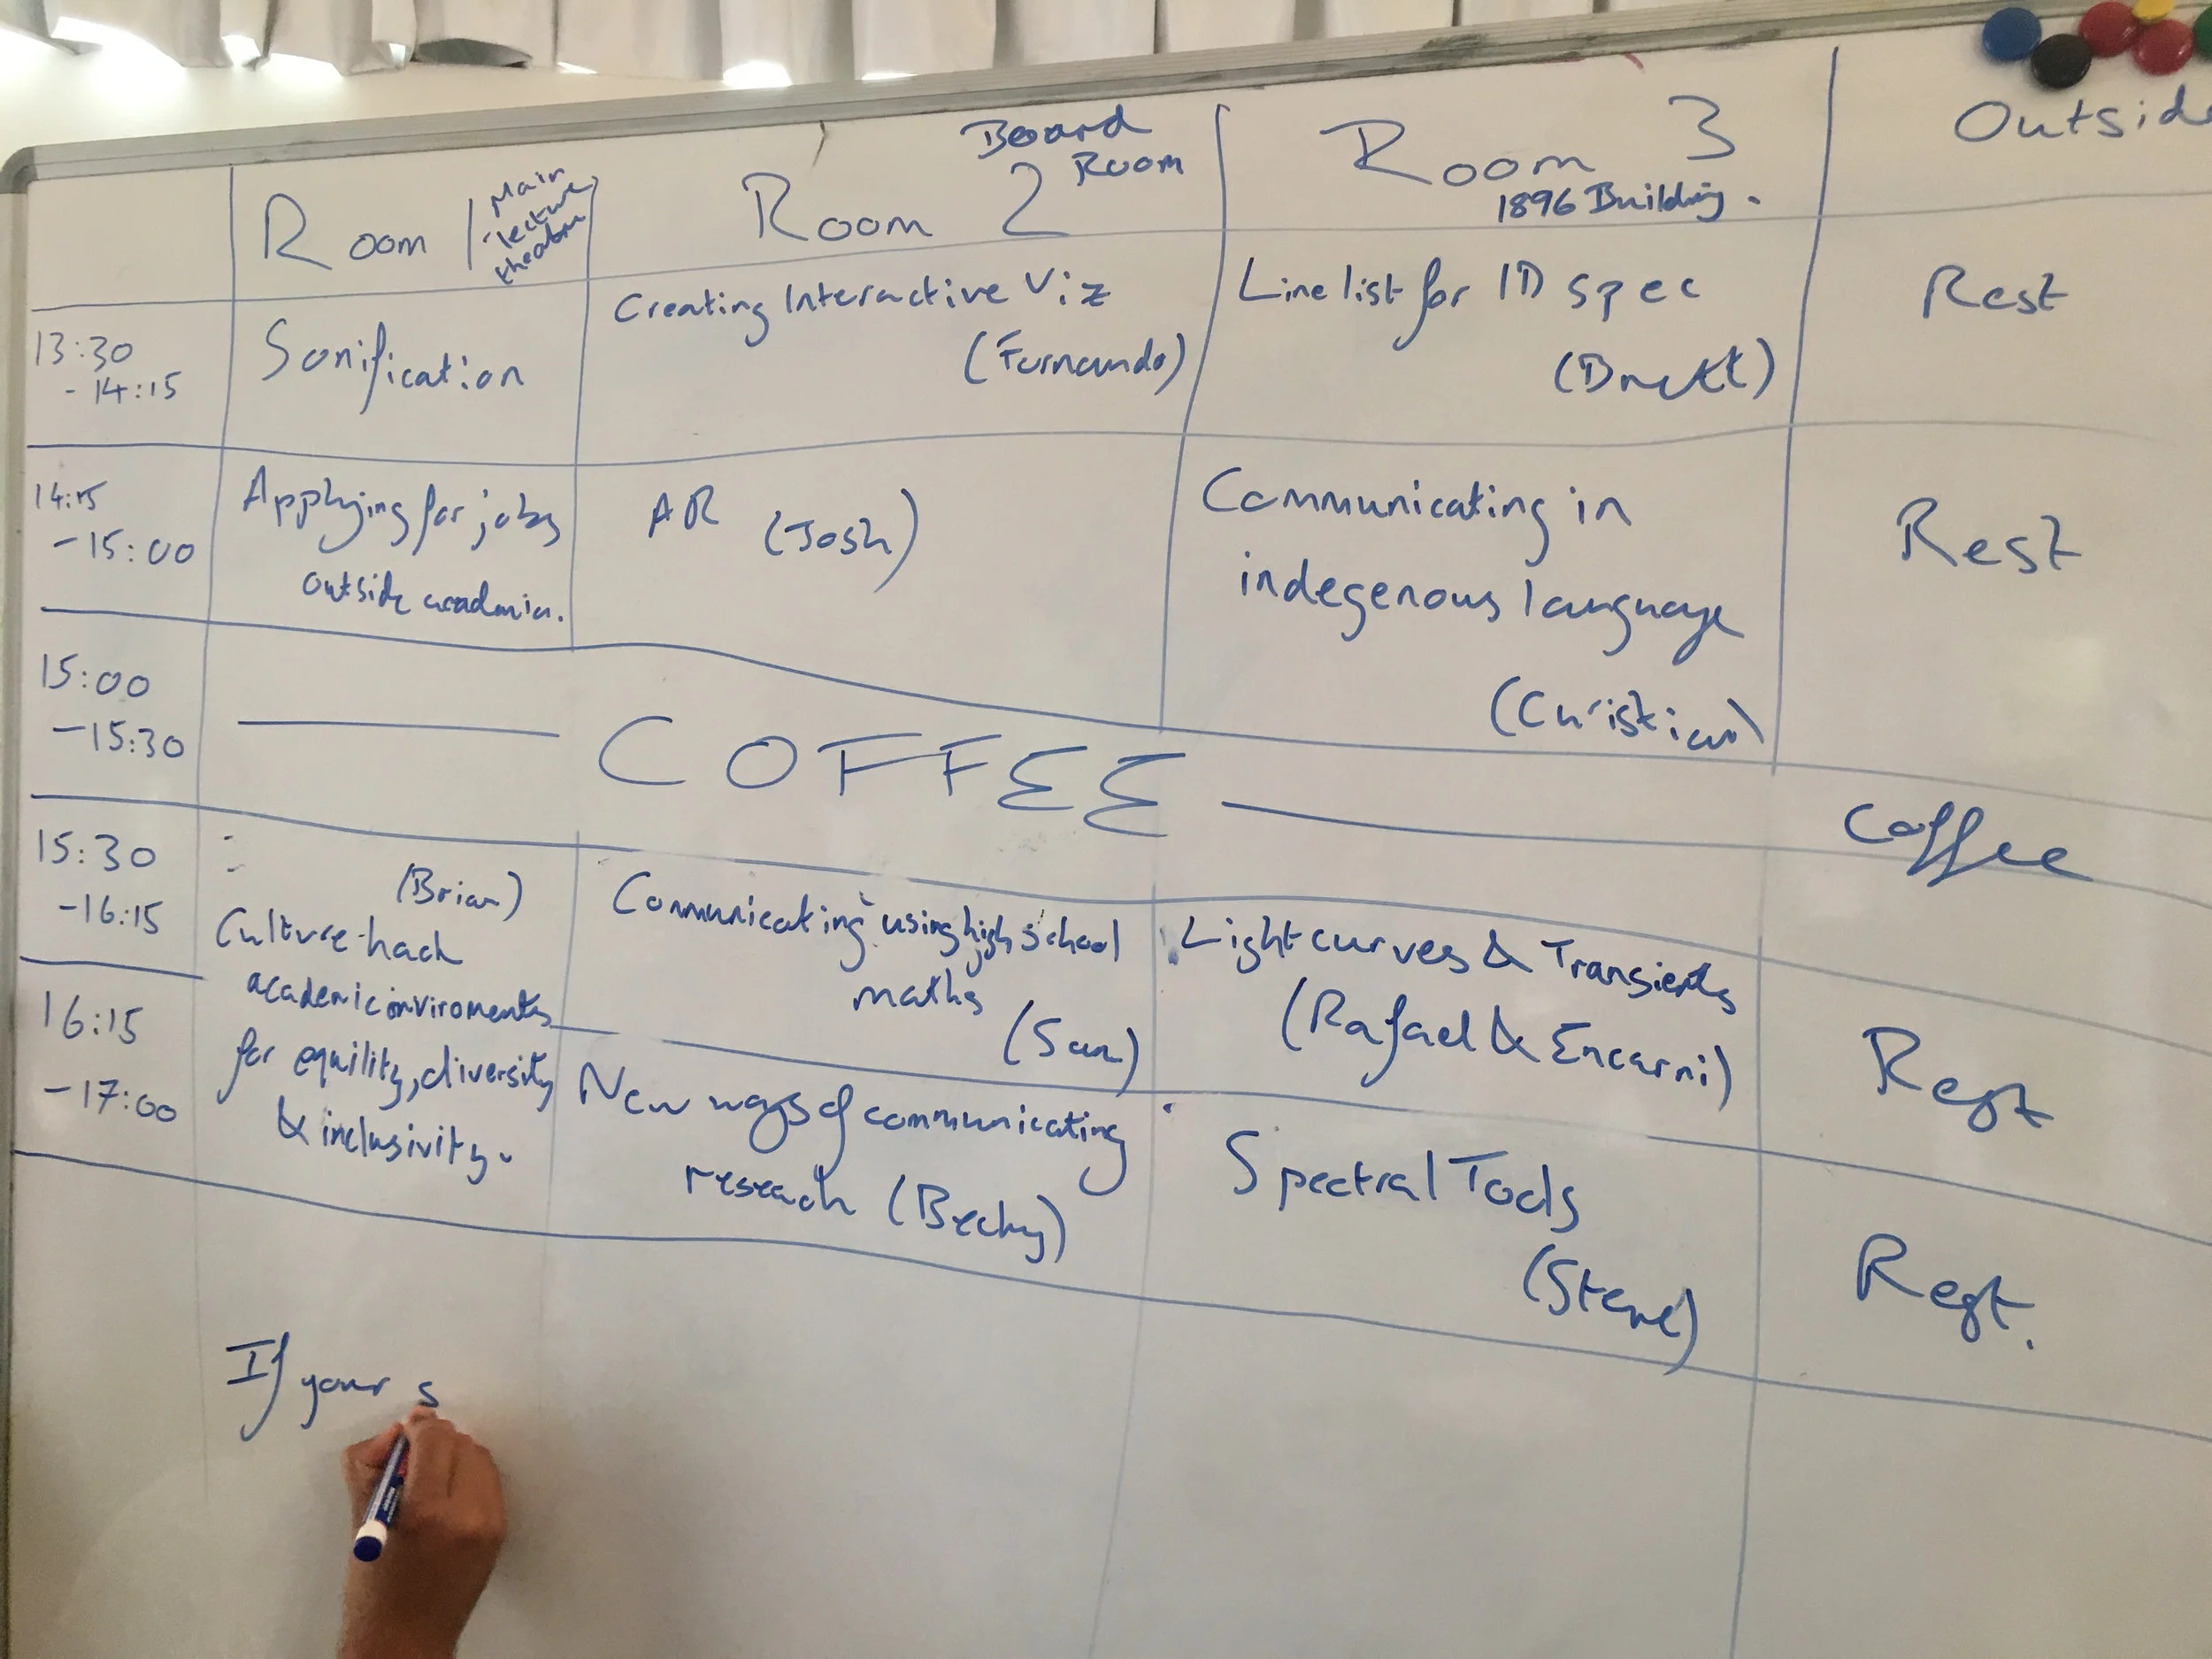 Room 1 Main
lecture
theatre
Room 2 Board
Room
Room 3
1896 Building.
Outside
13:30
- 14:15
Sonification
Creating Interactive Viz
(Fernando)
Line list for 1D spec
(Brett)
Rest
14:15
-15:00
Applying for jobs
outside academia.
AR (Josh)
Communicating in
indegenous language
(Christian)
Rest
15:00
-15:30
COFFEE
Coffee
15:30
-16:15
16:15
-17:00
(Brian)
Culture hack
academic enviroments
for equility, diversity
& inclusivity.
Communicating using high school
maths
(Sam)
Lightcurves & Transients
(Rafael & Encarni)
Rest
New ways of communicating
reseach (Becky)
Spectral Tools
(Steve)
Rest.
If your s